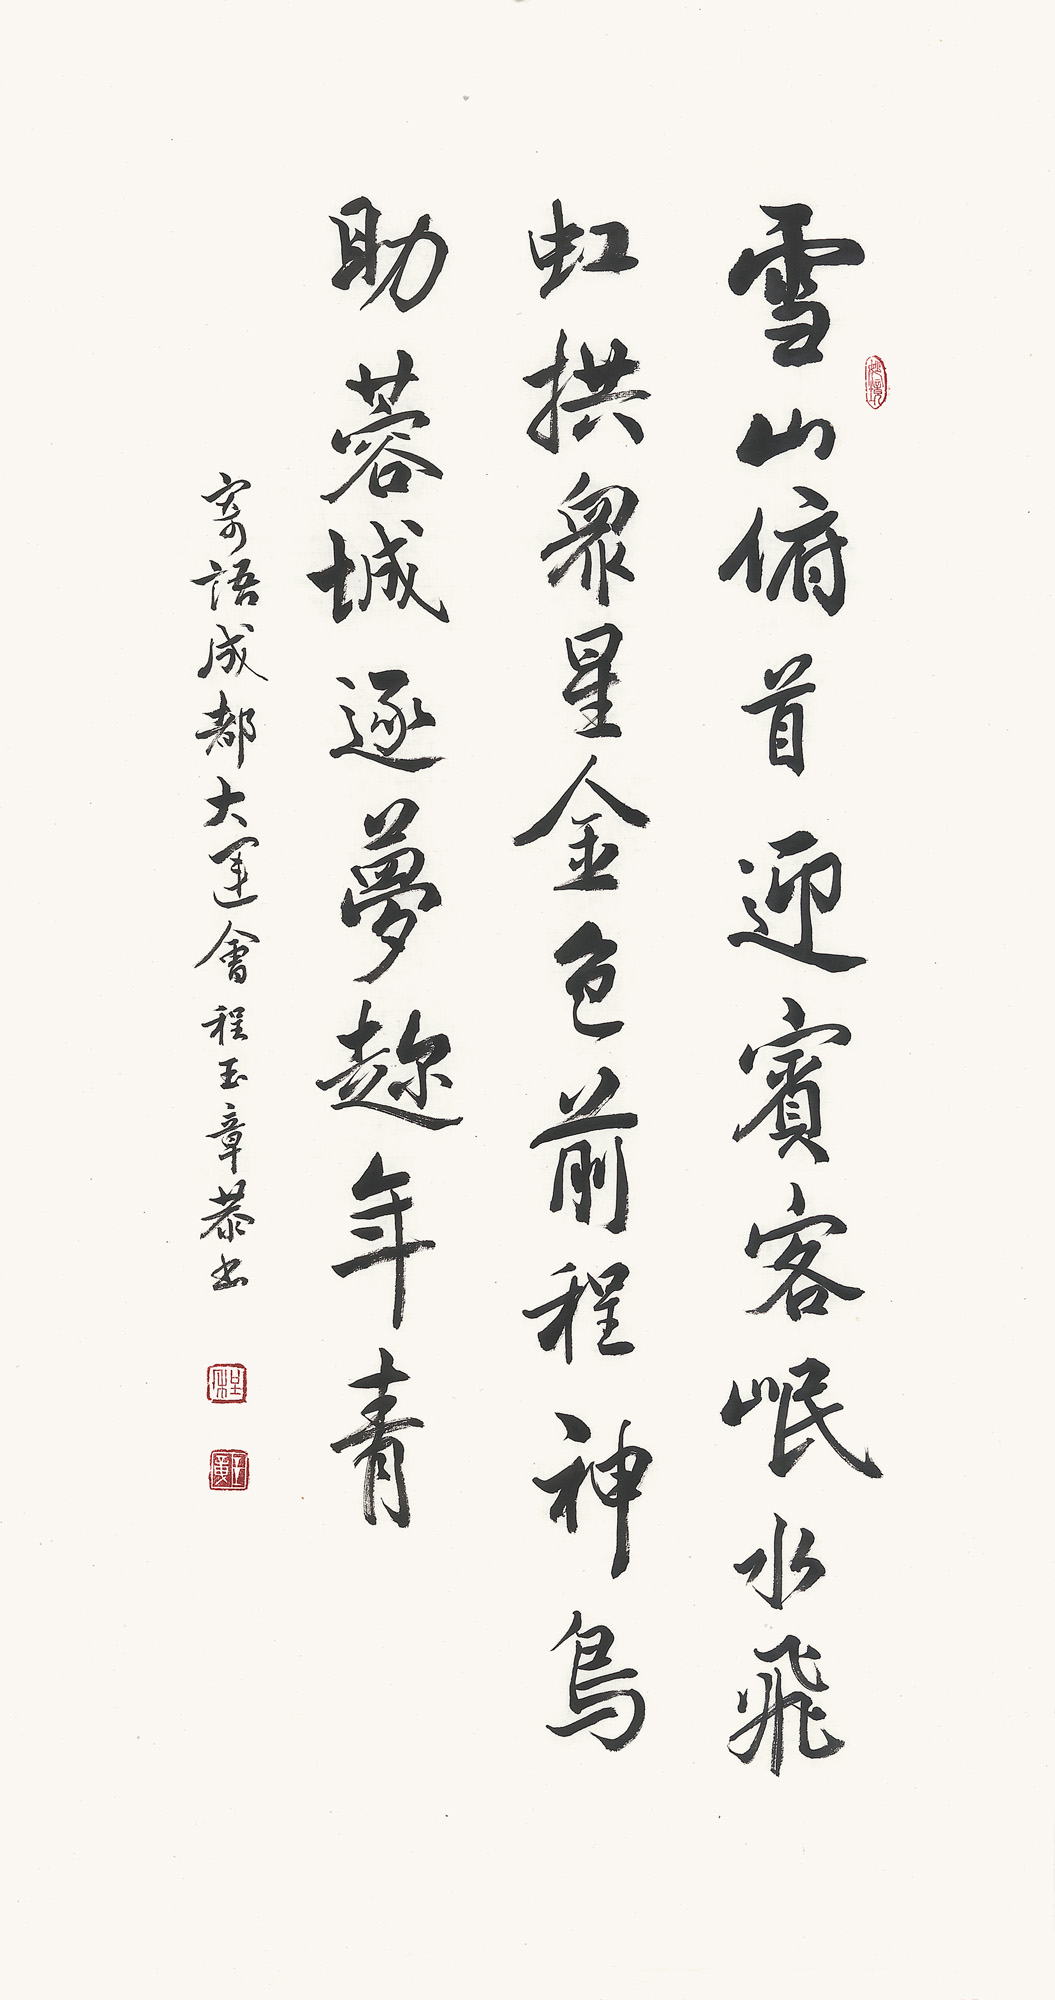 雪山俯首迎賓客岷水飛
虹拱衆星金色前程神鳥
助蓉城逐夢趂年青
寄語成都大運會程玉章恭书